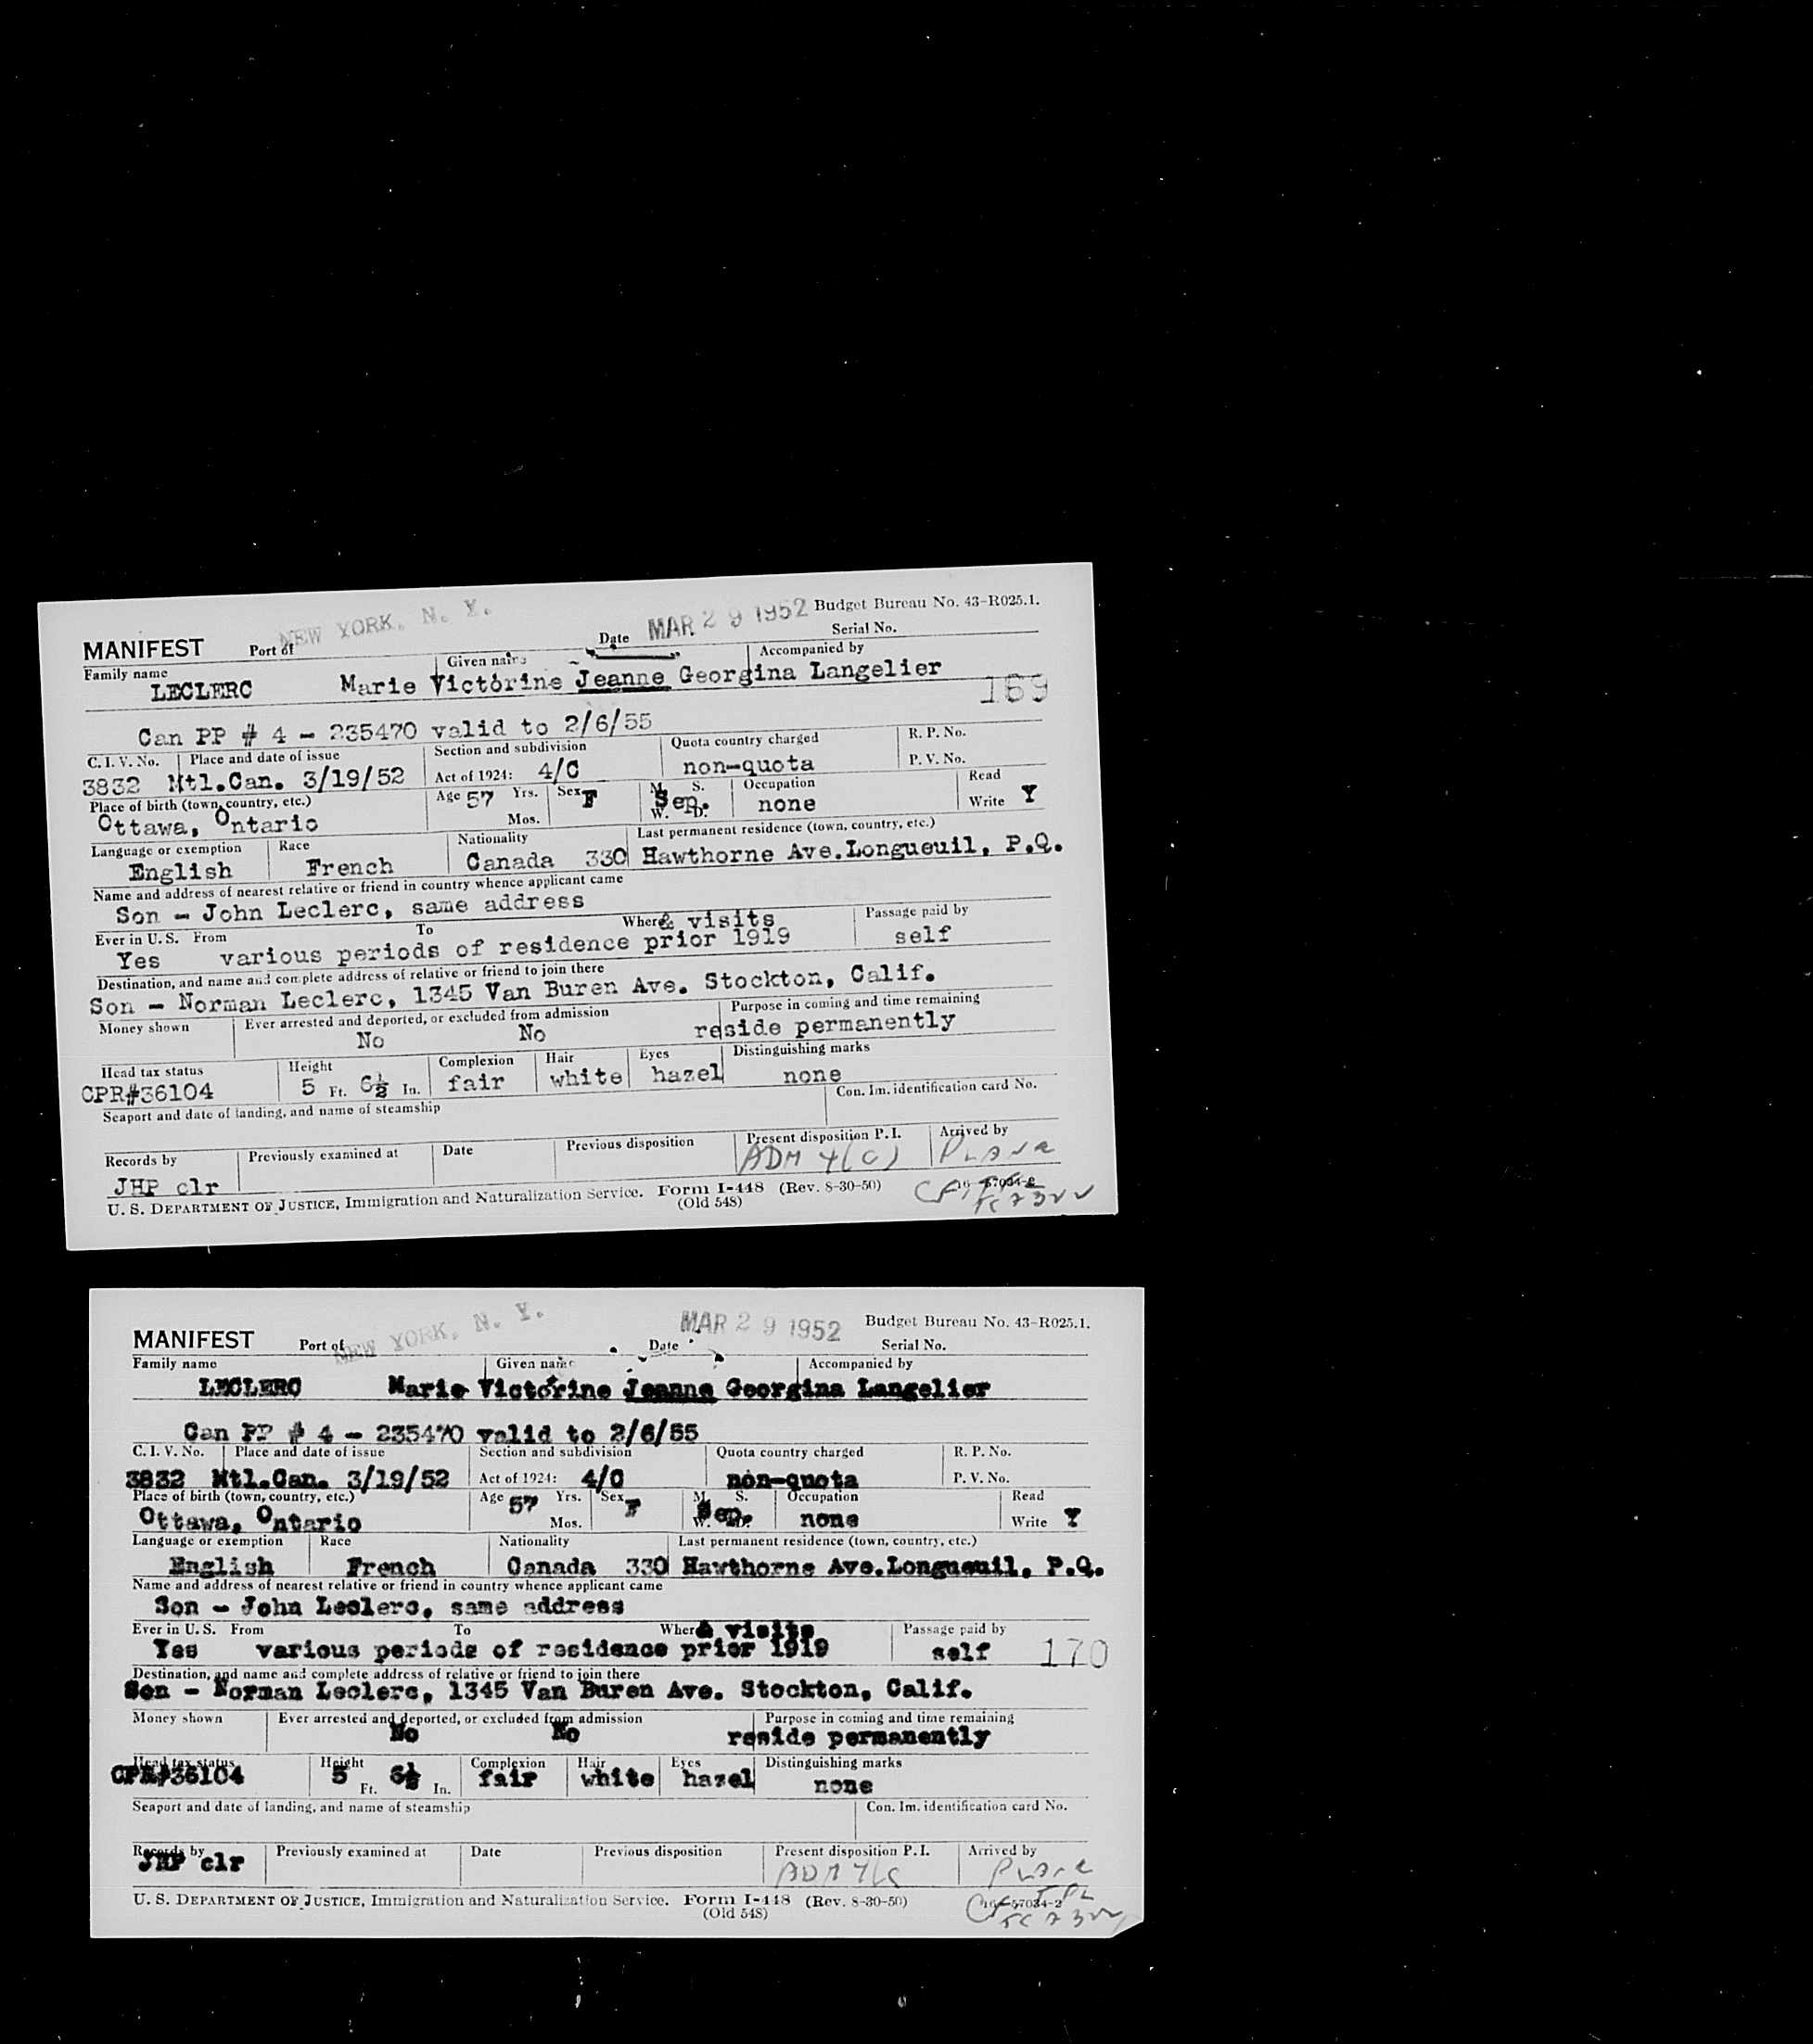 NEW YORK, N. Y.
MAR 29 1952
Budget Bureau No. 43-R025.1.
MANIFEST Port of Date Serial No.
Family name Given name Accompanied by
LECLERC Marie Victorine Jeanne Georgina Langelier
169
Can PP # 4 - 235470 valid to 2/6/55
C. I. V. No. Place and date of issue Section and subdivision Quota country charged R. P. No.
3832 Mtl.Can. 3/19/52 Act of 1924: 4/C non-quota P. V. No.
Place of birth (town, country, etc.) Age 57 Yrs. Mos. Sex F M. S. W. D. Sep. Occupation Read
Ottawa, Ontario none Write Y
Language or exemption Race Nationality Last permanent residence (town, country, etc.)
English French Canada 330 Hawthorne Ave.Longueuil, P.Q.
Name and address of nearest relative or friend in country whence applicant came
Son - John Leclerc, same address
Ever in U. S. From To Where & visits Passage paid by
Yes various periods of residence prior 1919 self
Destination, and name and complete address of relative or friend to join there
Son - Norman Leclerc, 1345 Van Buren Ave. Stockton, Calif.
Money shown Ever arrested and deported, or excluded from admission Purpose in coming and time remaining
No No reside permanently
Head tax status Height Complexion Hair Eyes Distinguishing marks
CPR#36104 5 Ft. 6½ In. fair white hazel none
Seaport and date of landing, and name of steamship Con. Im. identification card No.
Records by Previously examined at Date Previous disposition Present disposition P. I. Arrived by
JHP clr ADM 4(C) PLANE
U. S. DEPARTMENT OF JUSTICE, Immigration and Naturalization Service. Form I-448 (Rev. 8-30-50) 16—57034-2
(Old 548)
NEW YORK, N. Y.
MAR 29 1952
Budget Bureau No. 43-R025.1.
MANIFEST Port of Date Serial No.
Family name Given name Accompanied by
LECLERC Marie Victorine Jeanne Georgina Langelier
Can PP # 4 - 235470 valid to 2/6/55
C. I. V. No. Place and date of issue Section and subdivision Quota country charged R. P. No.
3832 Mtl.Can. 3/19/52 Act of 1924: 4/C non-quota P. V. No.
Place of birth (town, country, etc.) Age 57 Yrs. Mos. Sex F M. S. W. D. Sep. Occupation Read
Ottawa, Ontario none Write Y
Language or exemption Race Nationality Last permanent residence (town, country, etc.)
English French Canada 330 Hawthorne Ave.Longueuil, P.Q.
Name and address of nearest relative or friend in country whence applicant came
Son - John Leclerc, same address
Ever in U. S. From To Where & visits Passage paid by
Yes various periods of residence prior 1919 self 170
Destination, and name and complete address of relative or friend to join there
Son - Norman Leclerc, 1345 Van Buren Ave. Stockton, Calif.
Money shown Ever arrested and deported, or excluded from admission Purpose in coming and time remaining
No No reside permanently
Head tax status Height Complexion Hair Eyes Distinguishing marks
CPR#36104 5 Ft. 6½ In. fair white hazel none
Seaport and date of landing, and name of steamship Con. Im. identification card No.
Records by Previously examined at Date Previous disposition Present disposition P. I. Arrived by
JHP clr ADM 4(C PLANE
U. S. DEPARTMENT OF JUSTICE, Immigration and Naturalization Service. Form I-448 (Rev. 8-30-50) 16—57034-2
(Old 548)